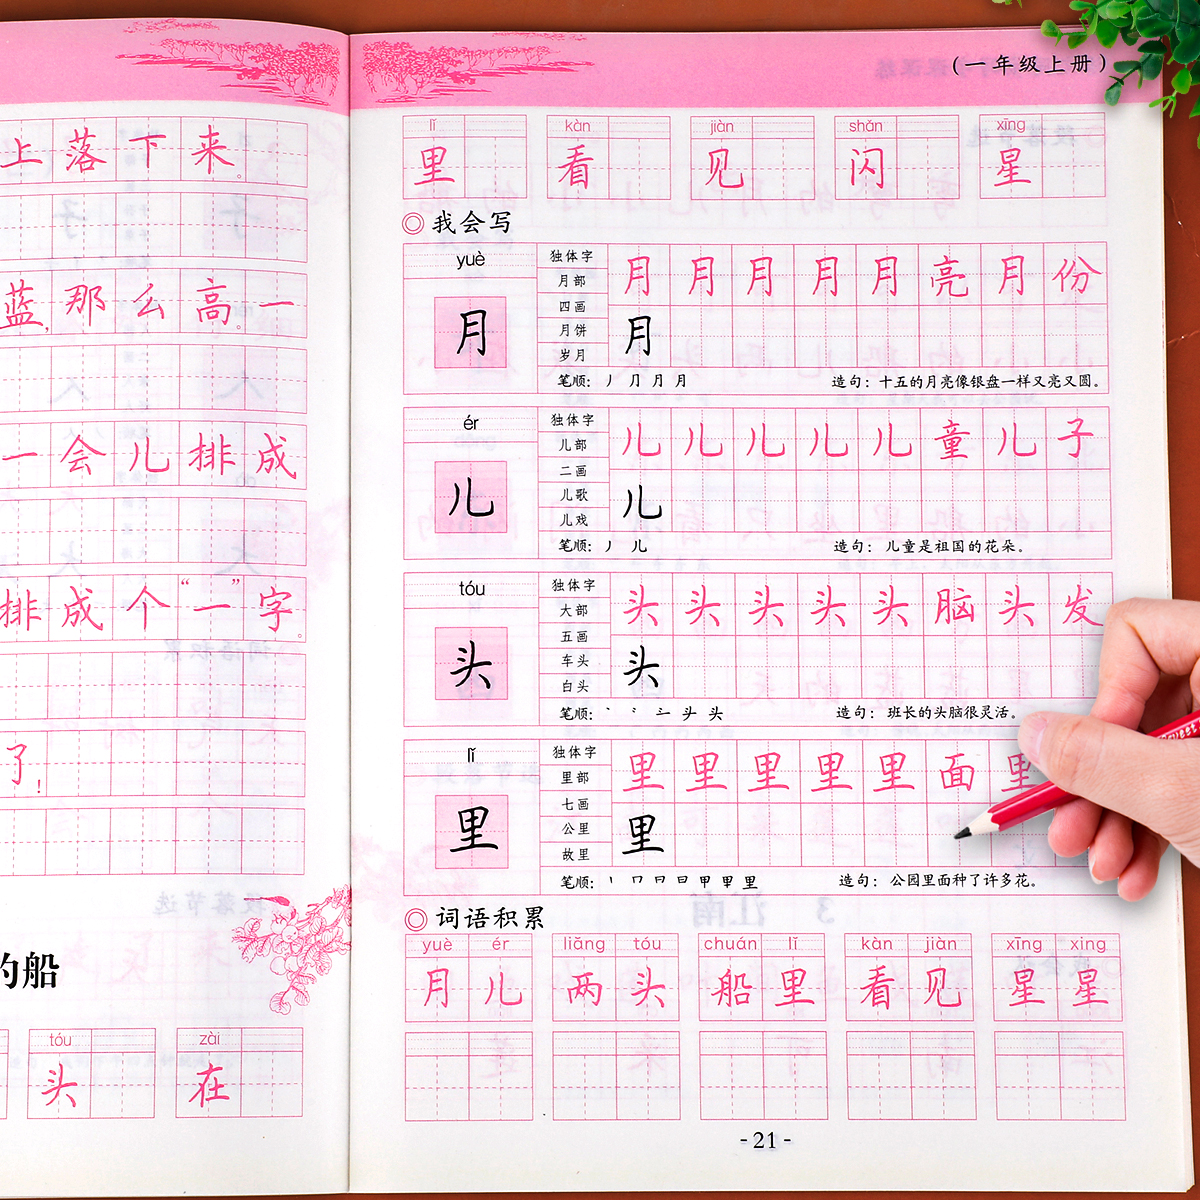 上落下来。
蓝,那么高。一
一会儿排成
排成个“一”字。
了!
的船
tóu zài
头 在
(一年级上册)
lǐ kàn jiàn shǎn xīng
里 看 见 闪 星
◎我会写
yuè
月
独体字
月部
四画
月饼
岁月
月月月月月亮月份
月
笔顺: 丿 ⺆ 月 月
造句: 十五的月亮像银盘一样又亮又圆。
ér
儿
独体字
儿部
二画
儿歌
儿戏
儿儿儿儿儿童儿子
儿
笔顺: 丿 儿
造句: 儿童是祖国的花朵。
tóu
头
独体字
大部
五画
车头
白头
头头头头头脑头发
头
笔顺: 丶 ⺀ 头 头
造句: 班长的头脑很灵活。
lǐ
里
独体字
里部
七画
公里
故里
里里里里里面里
里
笔顺: 丨 口 日 日 甲 里 里
造句: 公园里面种了许多花。
◎词语积累
yuè ér liǎng tóu chuán lǐ kàn jiàn xīng xing
月儿 两头 船里 看见 星星
- 21 -